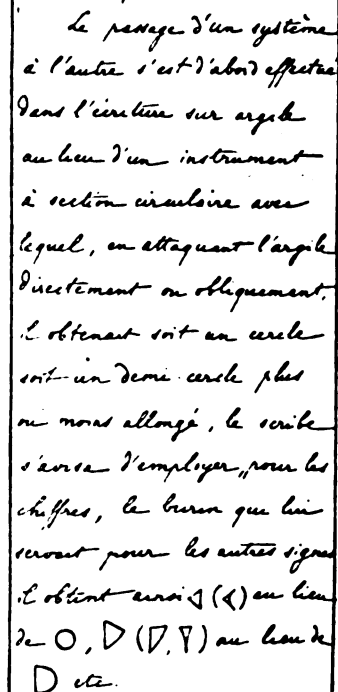 Le passage d'un système
à l'autre s'est d'abord effectué
dans l'écriture sur argile
au lieu d'un instrument
à section circulaire avec
lequel, en attaquant l'argile
directement ou obliquement,
il obtenait soit un cercle
soit un demi-cercle plus
ou moins allongé, le scribe
s'avisa d'employer, pour les
chiffres, le burin que lui
servait pour les autres signes
il obtint ainsi ◁ (∢) au lieu
de ○, ▷ (▷, ▽) au lieu de
D etc.